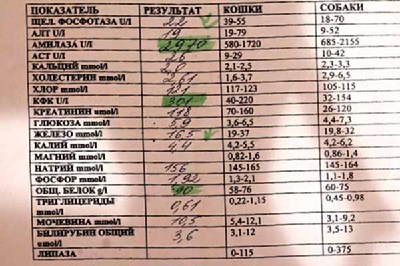 ПОКАЗАТЕЛЬ РЕЗУЛЬТАТ КОШКИ СОБАКИ
ЩЕЛ. ФОСФОТАЗА U/l 22 39-55 18-70
АЛТ U/l 19 19-79 9-52
АМИЛАЗА U/l 2970 580-1720 685-2155
АСТ U/l 9-29 10-42
КАЛЬЦИЙ mmol/l 2,1-2,5 2,3-3,3
ХОЛЕСТЕРИН mmol/l 2,61 1,6-3,7 2,9-6,5
ХЛОР mmol/l 121 117-123 105-115
КФК U/l 301 40-220 32-154
КРЕАТИНИН umol/l 118 70-160 26-120
ГЛЮКОЗА mmol/l 3,6-6,5 4,4-7,3
ЖЕЛЕЗО mmol/l 16,5 19-37 19,8-32
КАЛИЙ mmol/l 4,4 4,2-5,5 4,2-6,2
МАГНИЙ mmol/l 0,82-1,6 0,86-1,4
НАТРИЙ mmol/l 156 145-165 145-164
ФОСФОР mmol/l 1,92 1,3-2,1 1,1-1,8
ОБЩ. БЕЛОК g/l 90 58-76 60-75
ТРИГЛИЦЕРИДЫ 0,61 0,22-1,15 0,45-0,98
mmol/l
МОЧЕВИНА mmol/l 10,5 5,4-12,1 3,1-9,2
БИЛИРУБИН ОБЩИЙ 3,6 3,1-12 3,5-13
umol/l
ЛИПАЗА 0-115 0-375